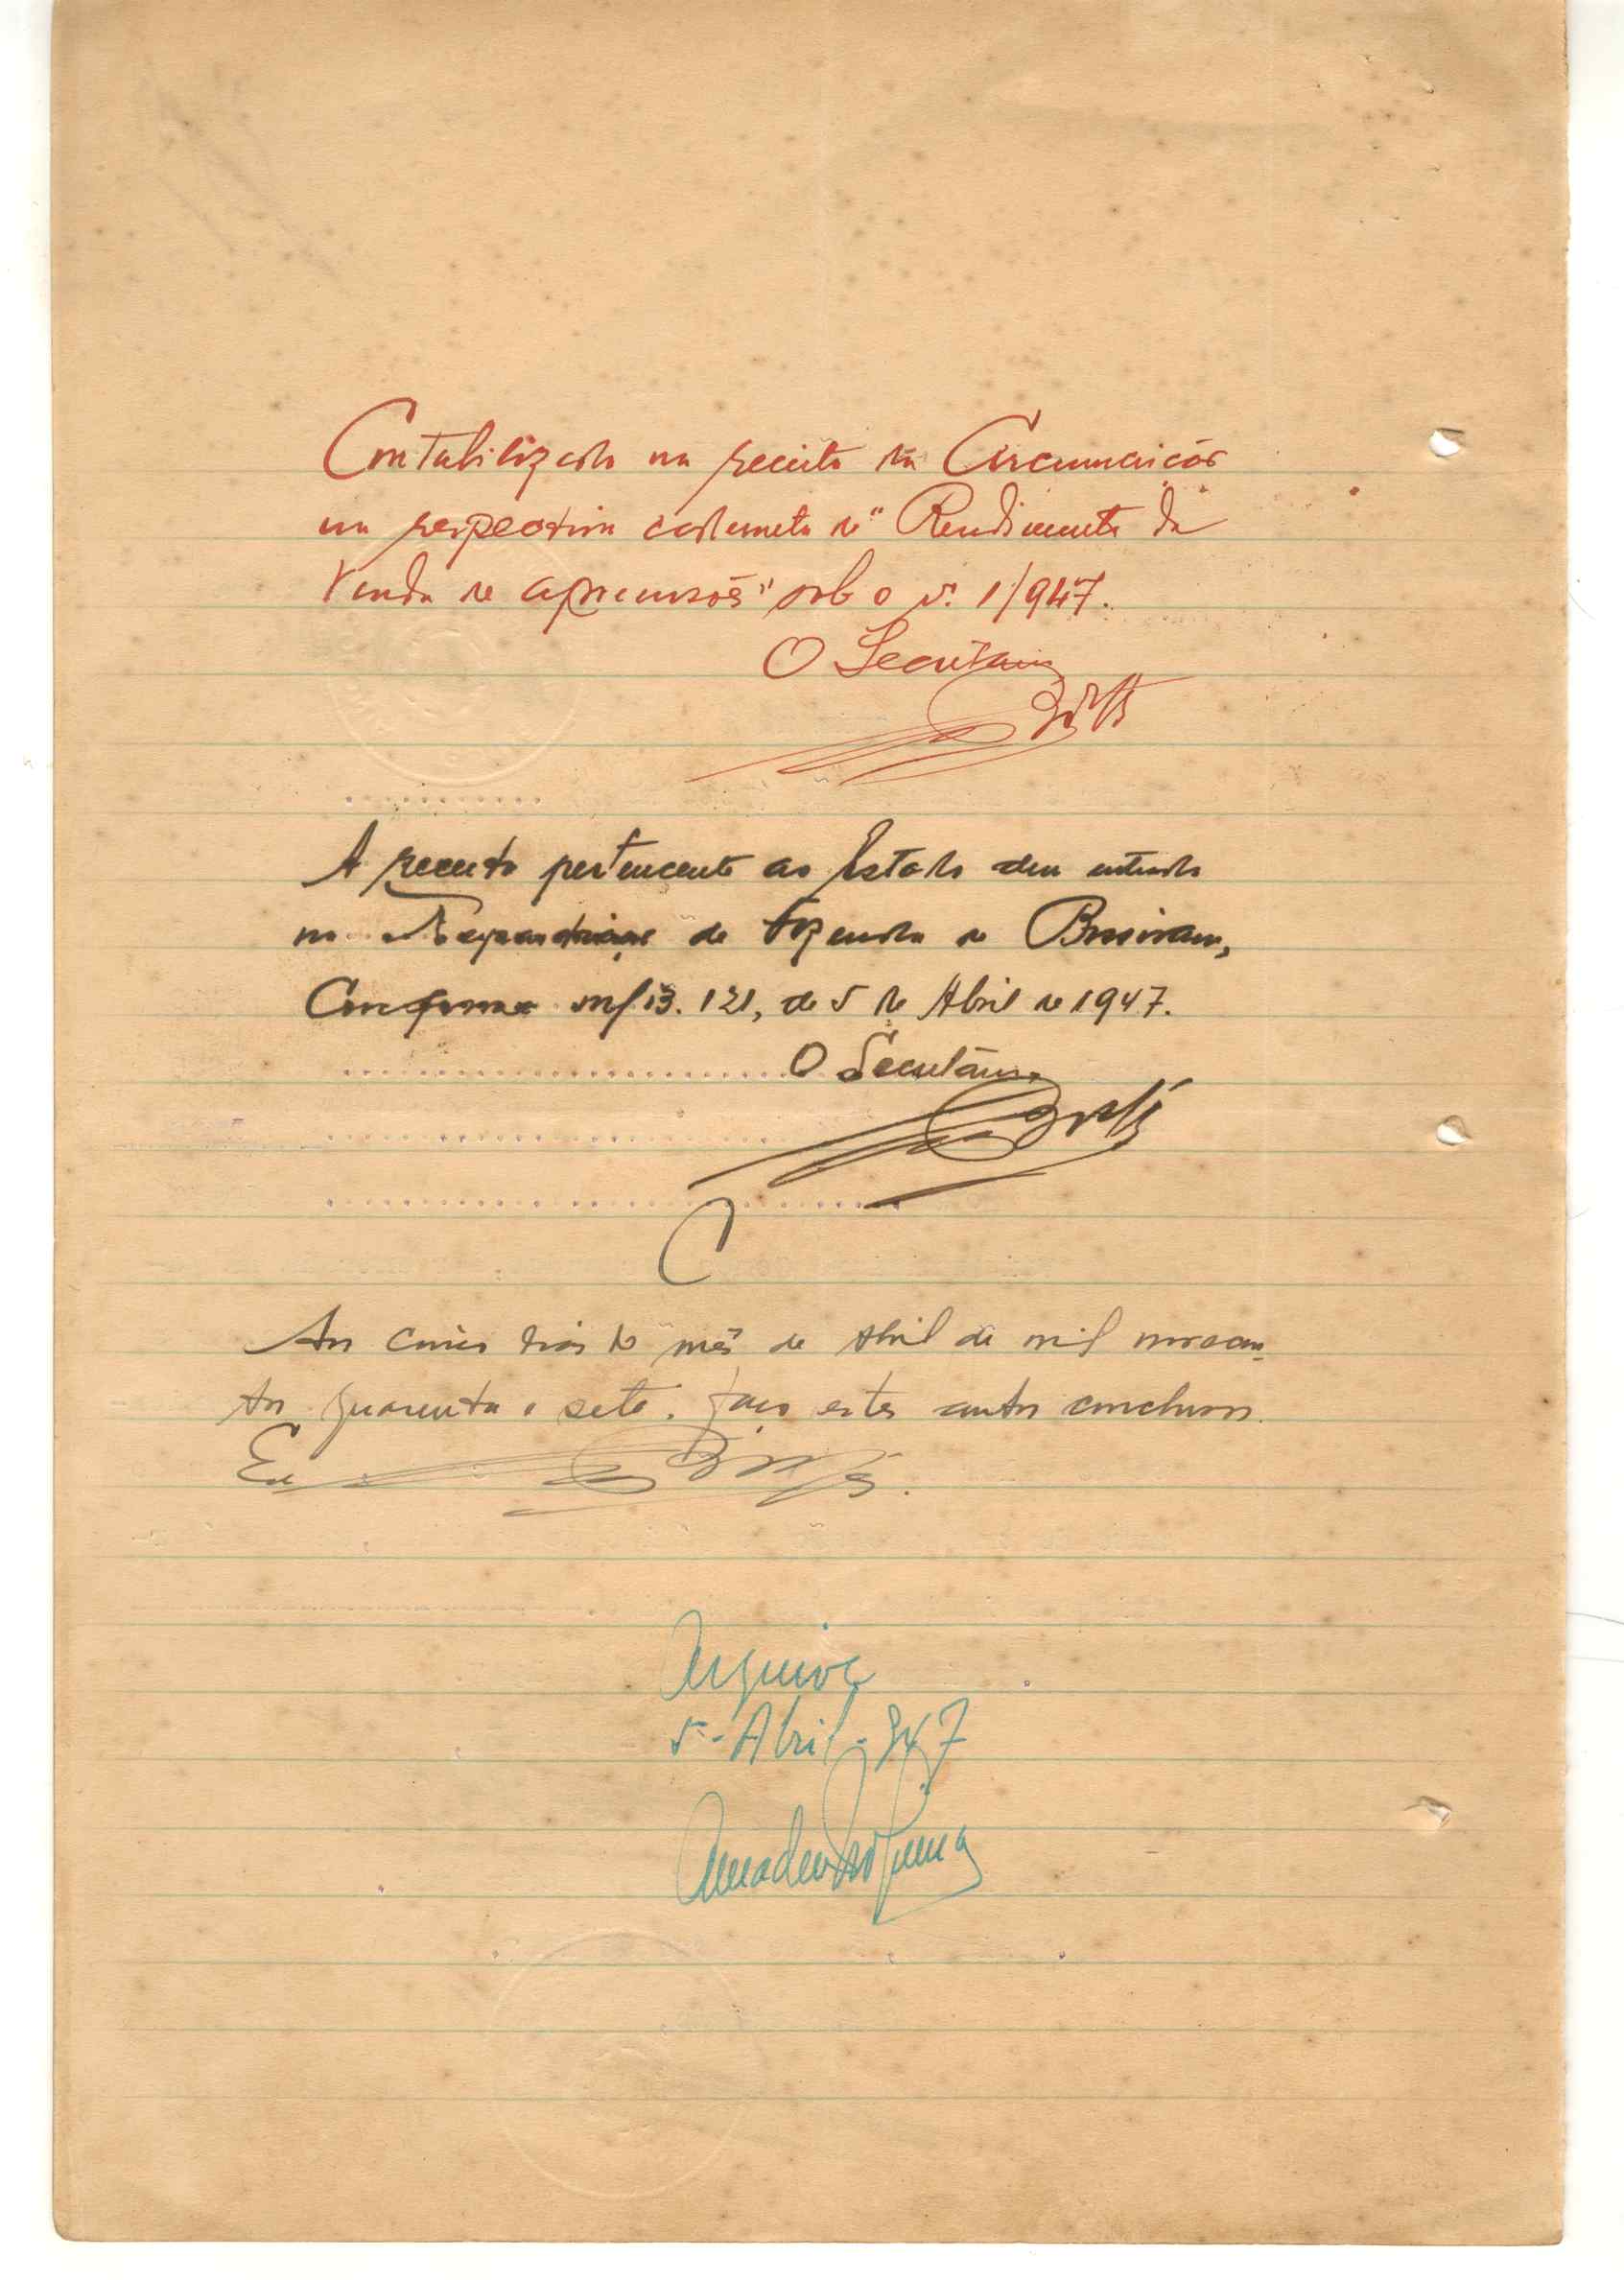 Contabilizada na receita da Circunscrição
na respectiva caderneta de "Rendimento da
Venda de apreensões" sob o n.º 1/947.
O Secretário
A receita pertencente ao Estado deu entrada
na Repartição de Fazenda de
Conforme 121, de 5 de Abril de 1947.
O Secretário
Aos cinco dias do mês de Abril de mil novecen-
tos quarenta e sete, faço estes autos conclusos.
Eu
Arquive
5-Abril-947
Amadeu